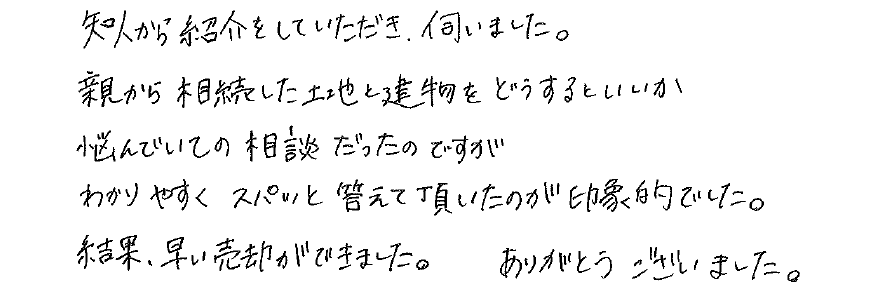 知人から紹介をしていただき、伺いました。
親から相続した土地と建物をどうするといいか
悩んでいての相談だったのですが
わかりやすくスパッと答えて頂いたのが印象的でした。
結果、早い売却ができました。　ありがとうございました。